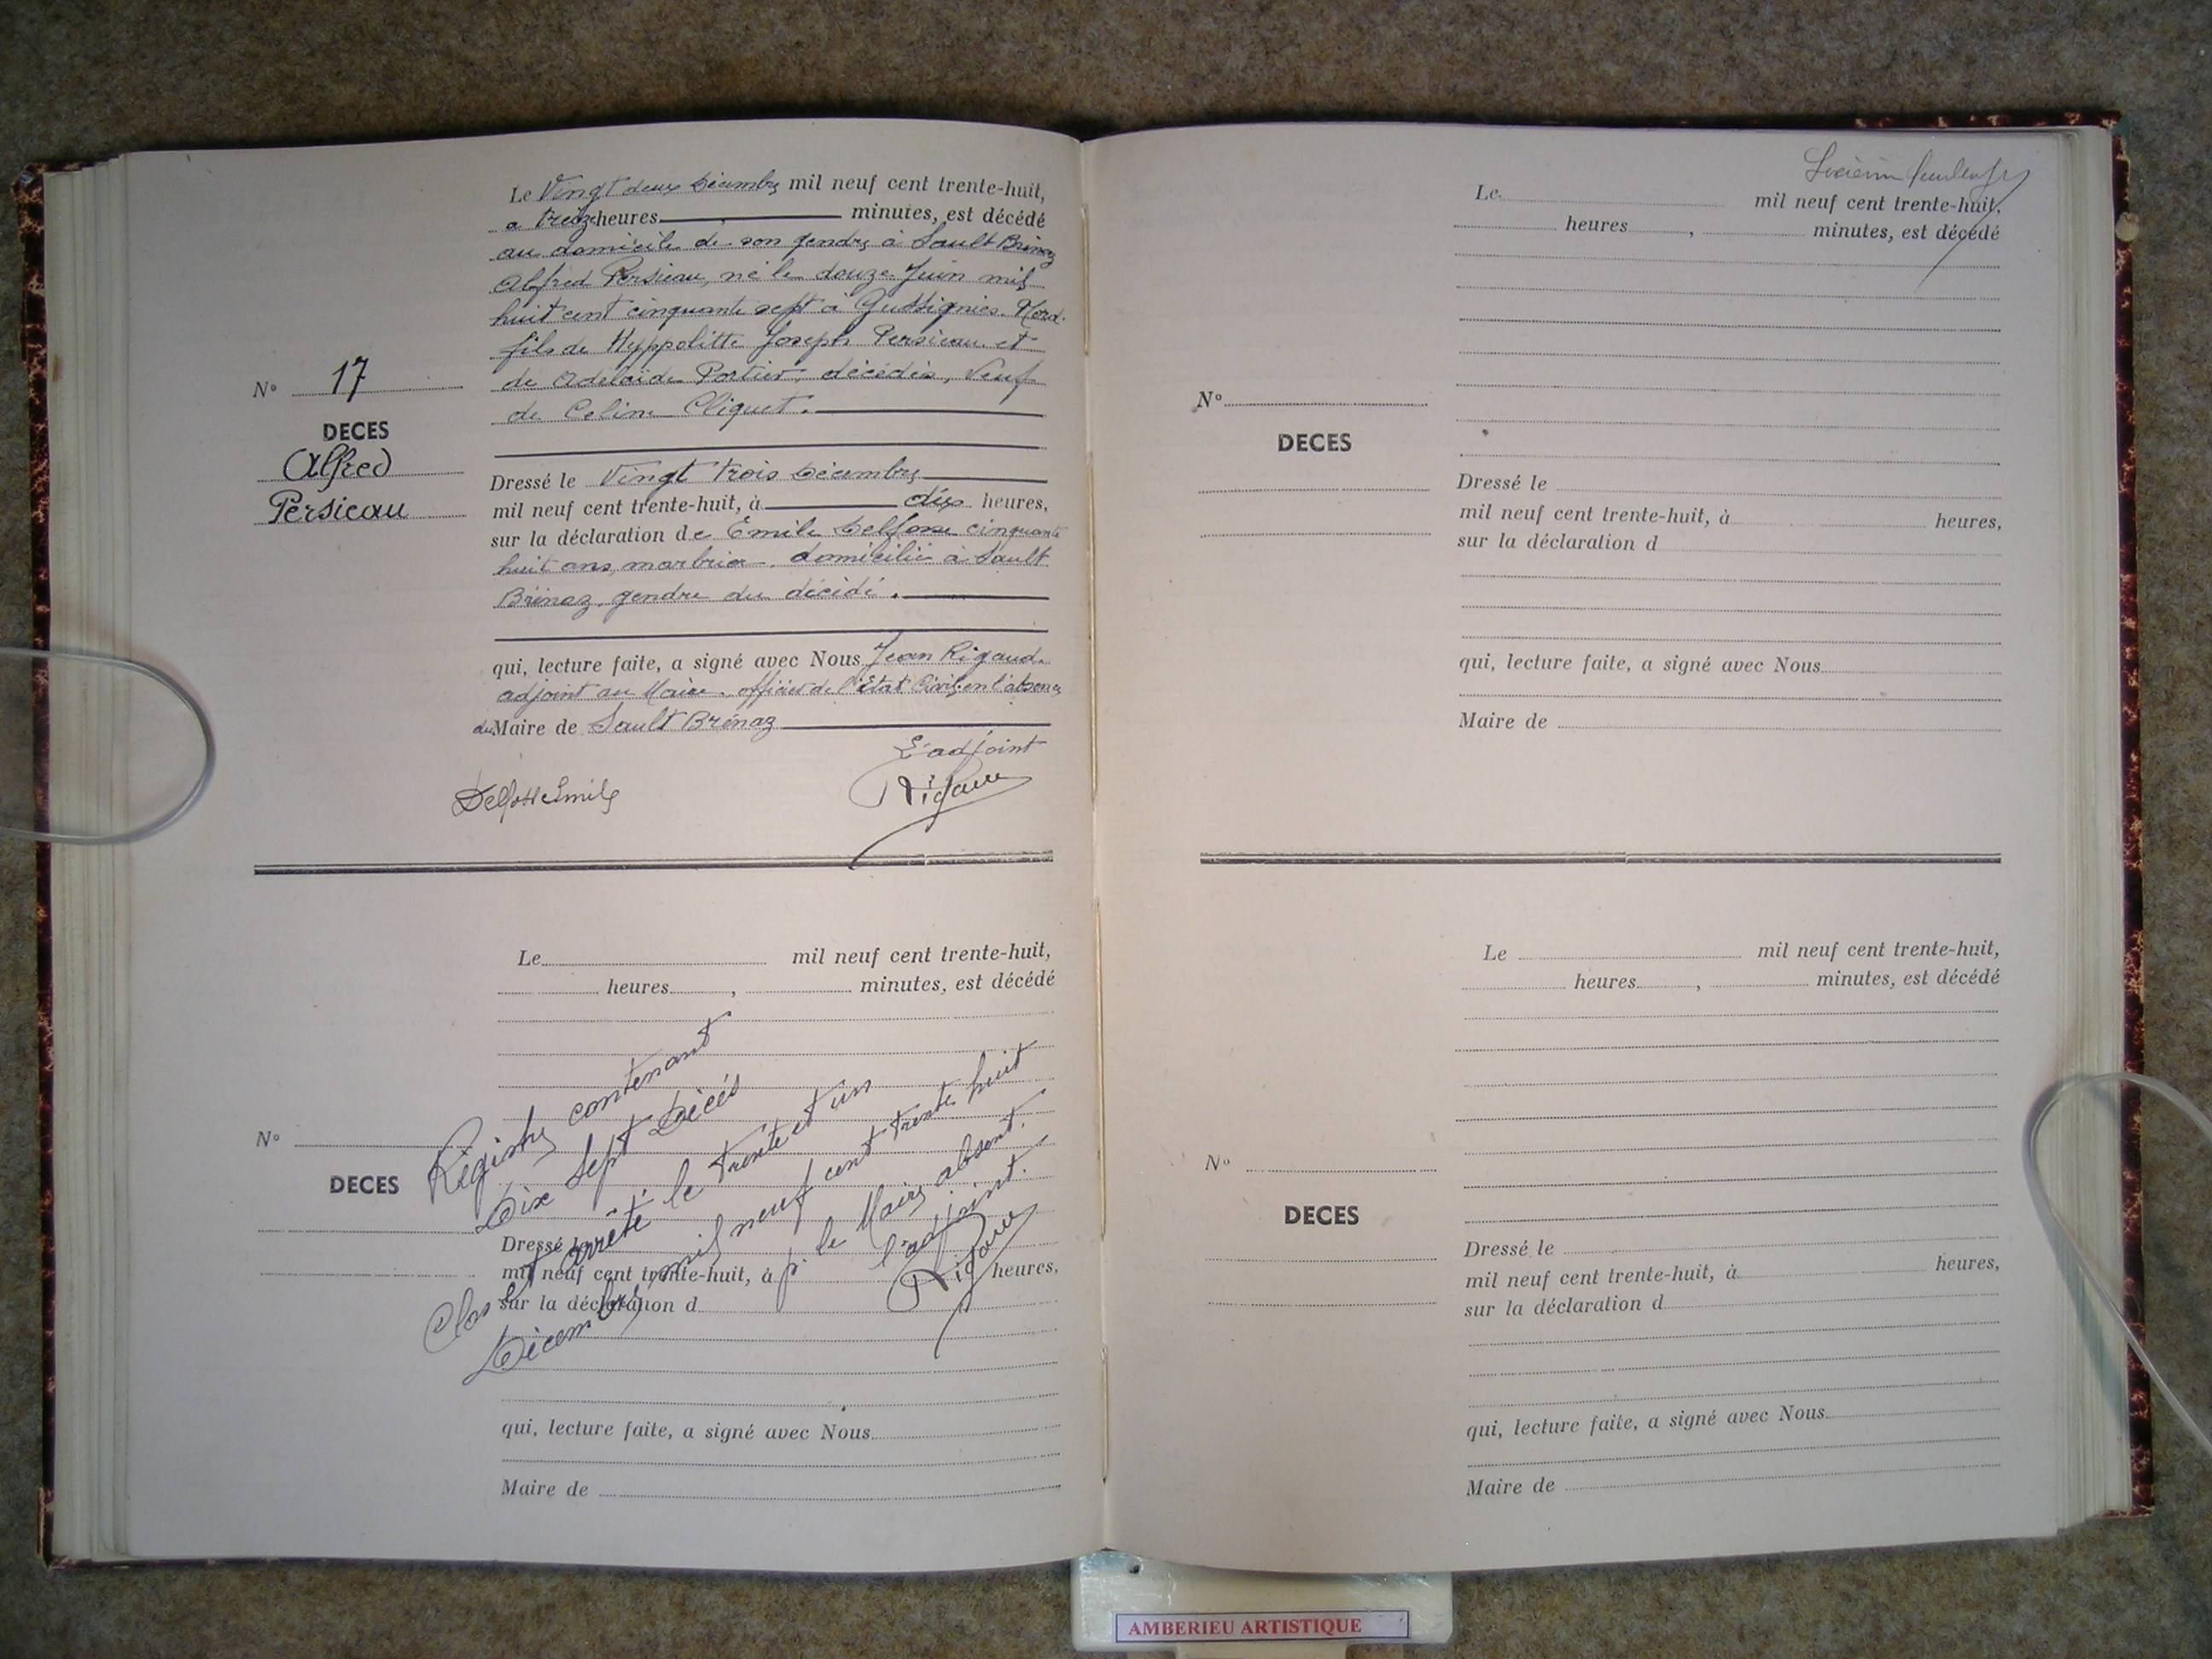 Le Vingt deux Décembre mil neuf cent trente-huit,
a treize heures , minutes, est décédé
au domicile de son gendre à Sault Brénaz
Alfred Persicau, né le douze Juin mil
huit cent cinquante sept à Gussignies. Nord.
fils de Hyppolitte Joseph Persicau et
de Adélaïde Portier, décédés, Veuf
de Celine Cliquet.
N° 17
DECES
Alfred
Persicau
Dressé le Vingt trois Décembre
mil neuf cent trente-huit, à dix heures,
sur la déclaration de Emile Delfosse cinquante
huit ans, marbrier. domicilié à Sault
Brénaz, gendre du décédé.
qui, lecture faite, a signé avec Nous Jean Rigaud.
adjoint au Maire. officier de l'Etat Civil en l'absence
du Maire de Sault Brénaz
L'adjoint
Delfosse Emile
Rigaud
Le mil neuf cent trente-huit,
heures , minutes, est décédé
N°
DECES
Registre contenant
Dix Sept Décés
Clos et arrêté le trente et un
Décembre mil neuf cent trente huit
p. le Maire absent.
l'adjoint.
Rigaud
Dressé le
mil neuf cent trente-huit, à heures,
sur la déclaration d
qui, lecture faite, a signé avec Nous
Maire de
Le mil neuf cent trente-huit,
heures , minutes, est décédé
N°
DECES
Dressé le
mil neuf cent trente-huit, à heures,
sur la déclaration d
qui, lecture faite, a signé avec Nous
Maire de
Le mil neuf cent trente-huit,
heures , minutes, est décédé
N°
DECES
Dressé le
mil neuf cent trente-huit, à heures,
sur la déclaration d
qui, lecture faite, a signé avec Nous
Maire de
AMBERIEU ARTISTIQUE